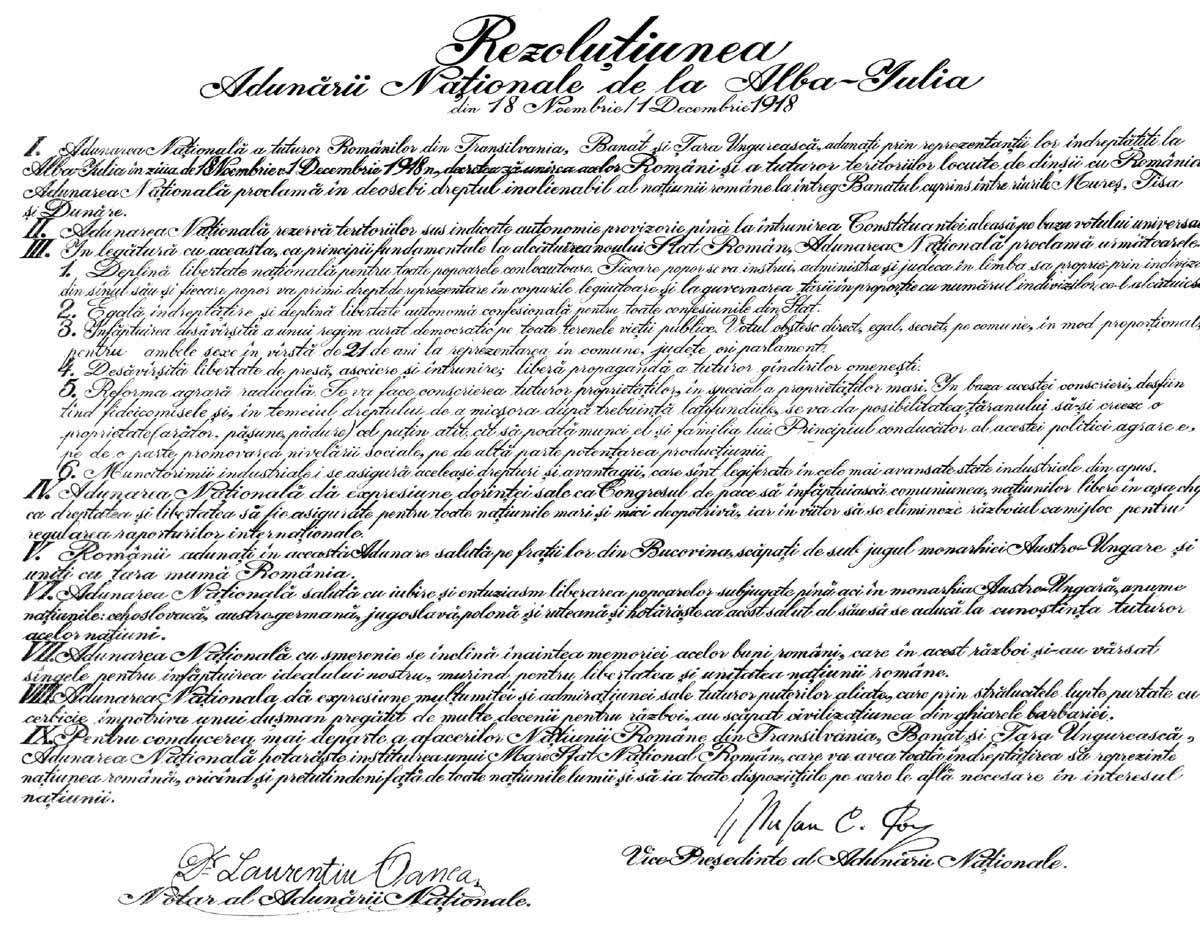 Rezoluțiunea
Adunării Naționale de la Alba-Iulia
din 18 Noembrie/1 Decembrie 1918
I. Adunarea Națională a tuturor Românilor din Transilvania, Banat și Țara Ungurească, adunați prin reprezentanții lor îndreptățiți la
Alba-Iulia în ziua de 18 Noembrie/1 Decembrie 1918, decretează unirea acelor Români și a tuturor teritoriilor locuite de dînșii cu România.
Adunarea Națională proclamă îndeosebi dreptul inalienabil al națiunii române la întreg Banatul cuprins între rîurile Mureș, Tisa
și Dunăre.
II. Adunarea Națională rezervă teritoriilor sus indicate autonomie provizorie pînă la întrunirea Constituantei aleasă pe baza votului universa
III. În legătură cu aceasta, ca principii fundamentale la alcătuirea noului Stat Român, Adunarea Națională proclamă următoarele:
1. Deplină libertate națională pentru toate popoarele conlocuitoare. Fiecare popor se va instrui, administra și judeca în limba sa proprie prin indivizi
din sînul său și fiecare popor va primi drept de reprezentare în corpurile legiuitoare și la guvernarea țării în proporție cu numărul indivizilor, ce-l alcătuies
2. Egală îndreptățire și deplină libertate autonomă confesională pentru toate confesiunile din Stat.
3. Înfăptuirea desăvîrșită a unui regim curat democratic pe toate terenele vieții publice. Votul obștesc direct, egal, secret, pe comune, în mod proporțional
pentru ambele sexe în vîrstă de 21 de ani la reprezentarea în comune, județe ori parlament.
4. Desăvîrșită libertate de presă, asociere și întrunire; liberă propagandă a tuturor gîndirilor omenești.
5. Reforma agrară radicală. Se va face conscrierea tuturor proprietăților, în special a proprietăților mari. În baza acestei conscrieri, desfiin
țind fideicomisele și, în temeiul dreptului de a micșora după trebuință latifundiile, se va da posibilitatea țăranului să-și creeze o
proprietate (arător, pășune, pădure) cel puțin atît cît să poată munci el și familia lui. Principiul conducător al acestei politici agrare e,
pe de o parte promovarea nivelării sociale, pe de altă parte potențarea producțiunii
6. Muncitorimii industriale i se asigură aceleași drepturi și avantagii, care sînt legiferate în cele mai avansate state industriale din apus.
IV. Adunarea Națională dă expresiune dorinței sale ca Congresul de pace să înfăptuiască comuniunea, națiunilor libere în așa chip
ca dreptatea și libertatea să fie asigurate pentru toate națiunile mari și mici deopotrivă, iar în viitor să se elimineze războiul ca mijloc pentru
regularea raporturilor internaționale.
V. Românii adunați în aceasta Adunare salută pe frații lor din Bucovina, scăpați de sub jugul monarhiei Austro-Ungare și
uniți cu țara mumă România.
VI. Adunarea Națională salută cu iubire și entuziasm liberarea popoarelor subjugate pînă aci în monarhia Austro-Ungară, anume
națiunile: cehoslovacă, austrogermană, jugoslavă, polonă și ruteană și hotărăște ca acest salut al său să se aducă la cunoștința tuturor
acelor națiuni.
VII. Adunarea Națională cu smerenie se închină înaintea memoriei acelor buni români, care în acest război și-au vărsat
sîngele pentru înfăptuirea idealului nostru, murind pentru libertatea și unitatea națiunii române.
VIII. Adunarea Nationala dă expresiune mulțumitei și admirațiunei sale tuturor puterilor aliate, care prin strălucitele lupte purtate cu
cerbicie împotriva unui dușman pregătit de multe decenii pentru război, au scăpat civilizațiunea din ghiarele barbariei.
IX. Pentru conducerea mai departe a afacerilor Națiunii Române din Transilvania, Banat și Țara Ungurească,
Adunarea Națională hotărăște instituirea unui Mare Sfat Național Român, care va avea toată îndreptățirea să reprezinte
națiunea română, oricînd și pretutindeni față de toate națiunile lumii și să ia toate dispozițiile pe care le află necesare în interesul
națiunii.
C. Pop
Vice Președinte al Adunării Naționale.
Dr. Laurențiu Oanea
Notar al Adunării Naționale.